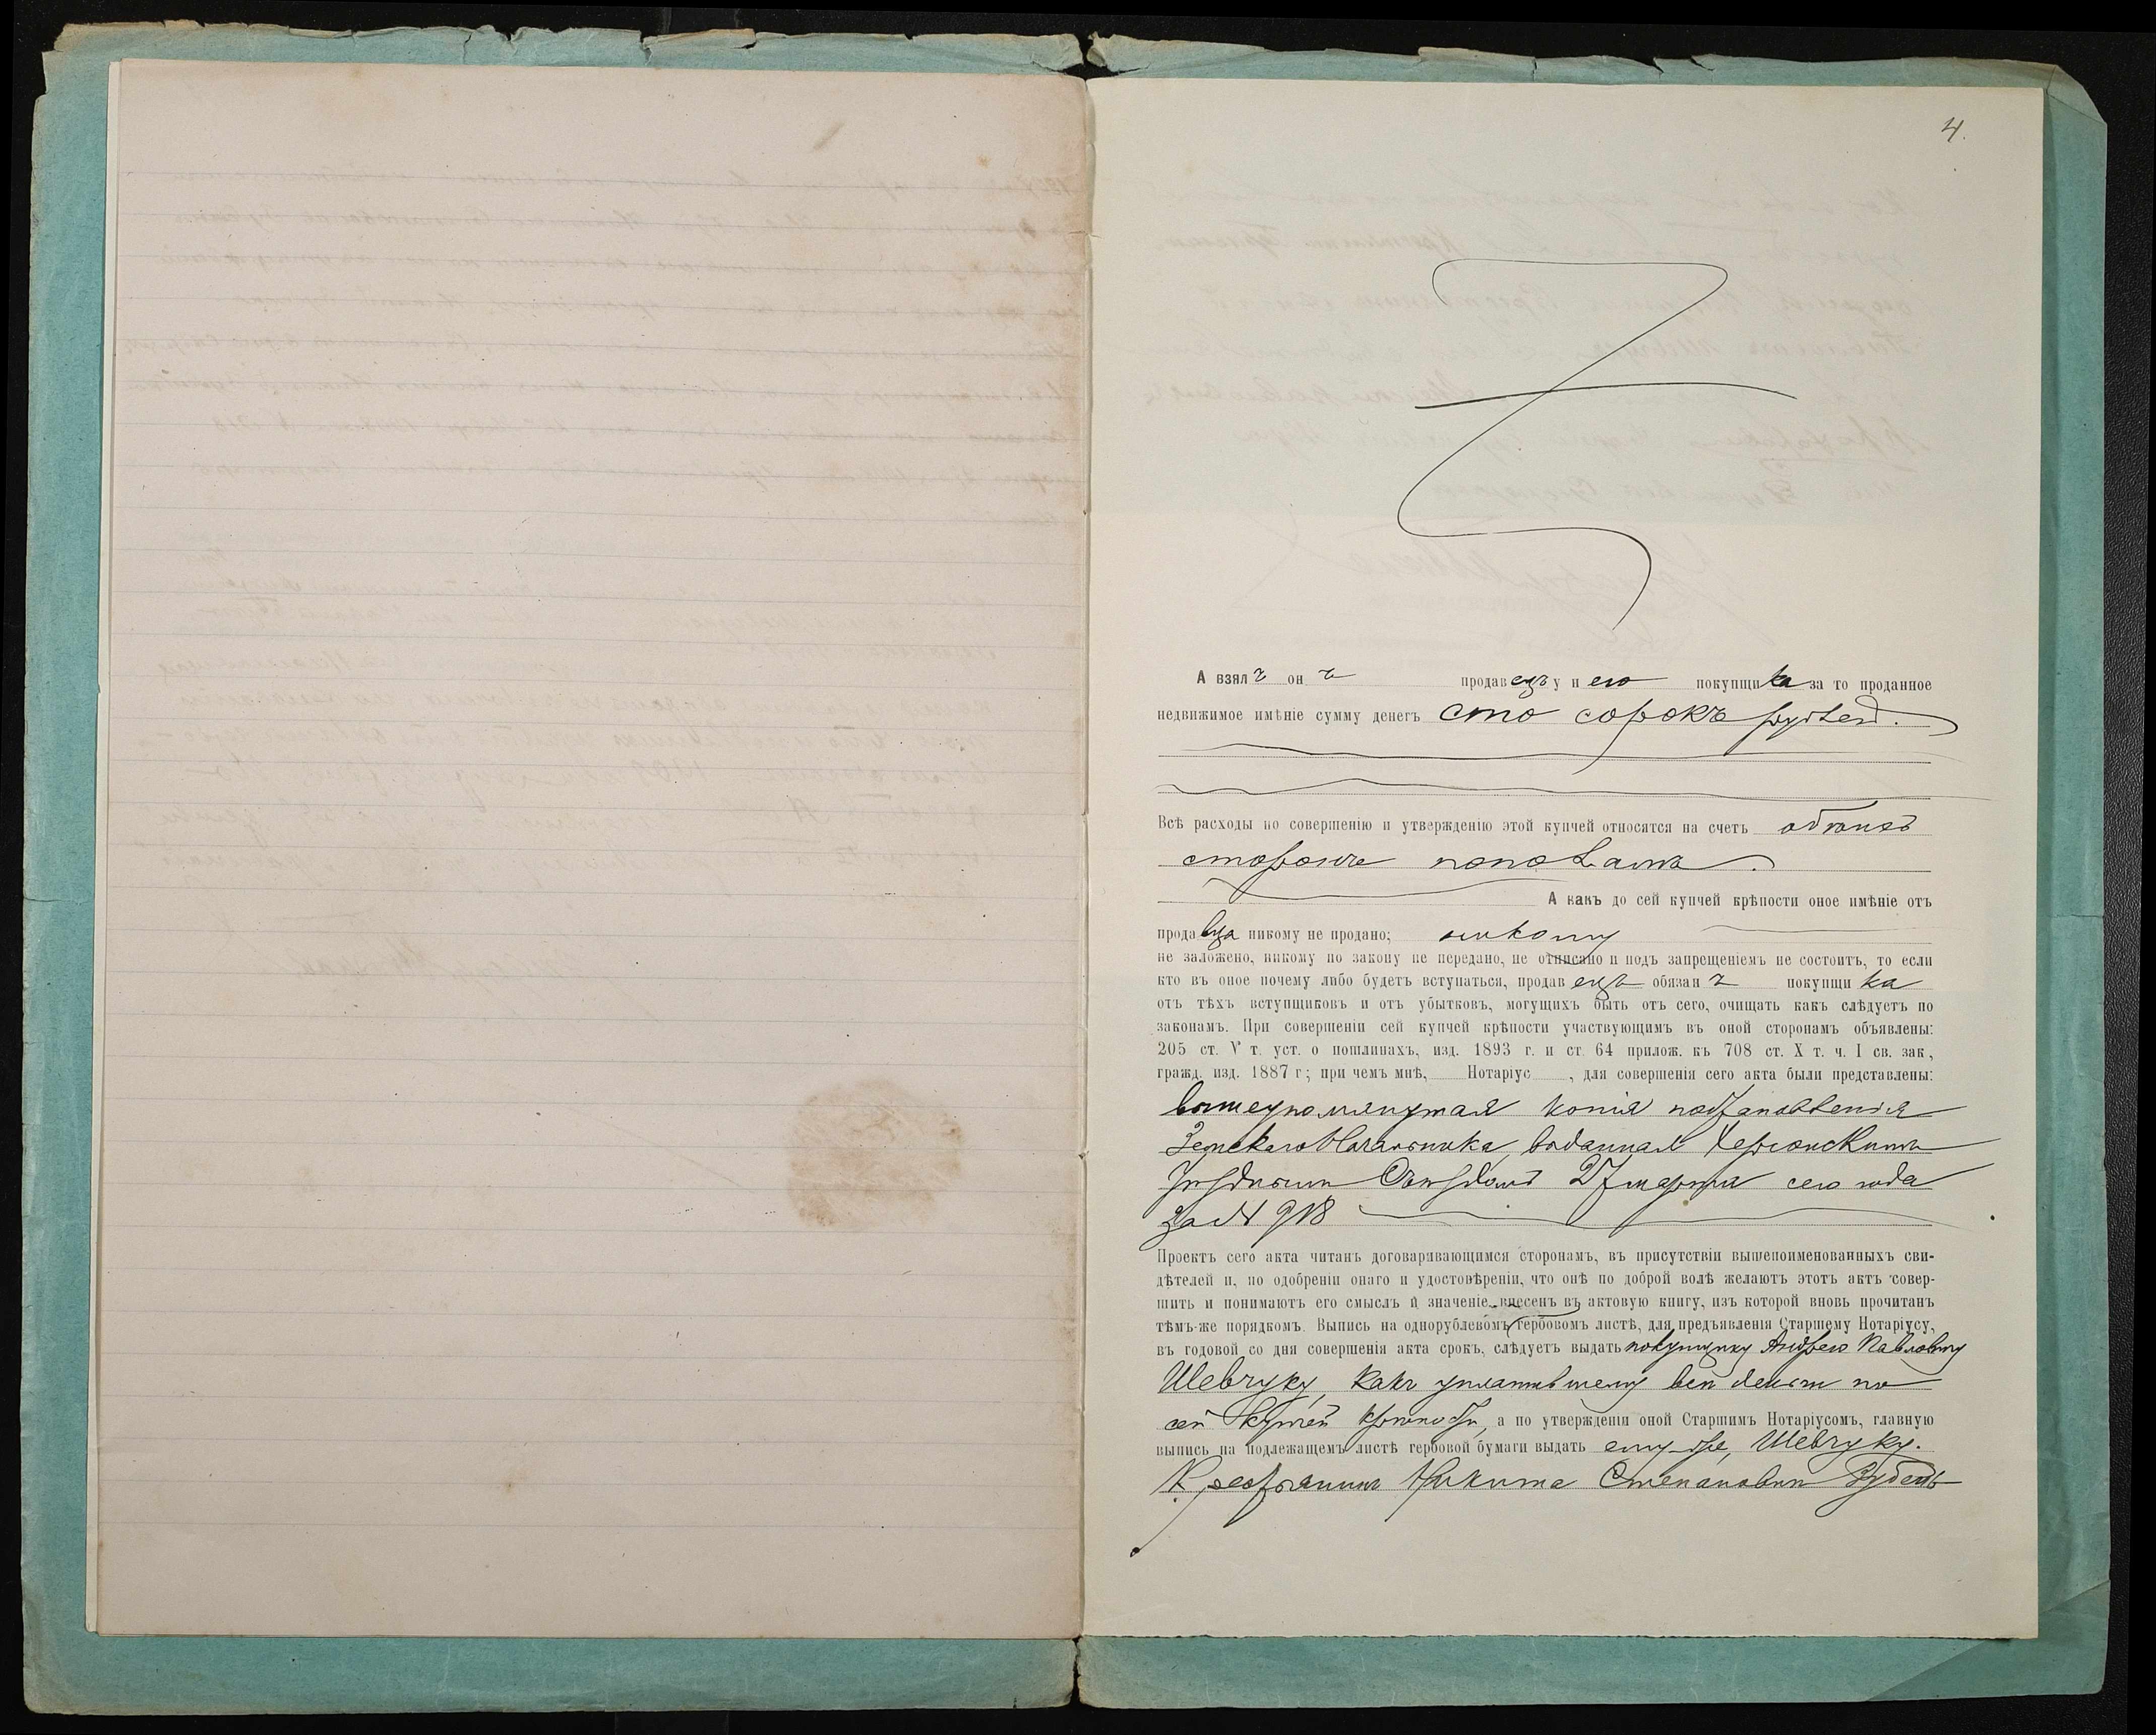 4.
А взялъ онъ продавецъ у него покупщика за то проданное
недвижимое имѣніе сумму денегъ сто сорокъ рублей.
Всѣ расходы по совершенію и утвержденію этой купчей относятся на счетъ обѣихъ
сторонъ пополамъ.
А какъ до сей купчей крѣпости оное имѣніе отъ
продавца никому не продано; никому
не заложено, никому по закону не передано, не отписано и подъ запрещеніемъ не состоитъ, то если
кто въ оное почему либо будетъ вступаться, продавецъ обязанъ покупщика
отъ тѣхъ вступщиковъ и отъ убытковъ, могущихъ быть отъ сего, очищать какъ слѣдуетъ по
законамъ. При совершеніи сей купчей крѣпости участвующимъ въ оной сторонамъ объявлены:
205 ст. V т. уст. о пошлинахъ, изд. 1893 г. и ст. 64 прилож. къ 708 ст. X т. ч. I св. зак.,
гражд. изд. 1887 г; при чемъ мнѣ, Нотаріус , для совершенія сего акта были представлены:
вышеупомянутая копія постановленія
Земскаго Начальника, выданная Херсонскимъ
Уѣзднымъ Съѣздомъ 27 марта сего года
за № 918
Проектъ сего акта читанъ договаривающимся сторонамъ, въ присутствіи вышепоименованныхъ сви-
дѣтелей и, по одобреніи онаго и удостовѣреніи, что онѣ по доброй волѣ желаютъ этотъ актъ совер-
шить и понимаютъ его смыслъ и значеніе внесенъ въ актовую книгу, изъ которой вновь прочитанъ
тѣмъ-же порядкомъ. Выпись на однорублевомъ гербовомъ листѣ, для предъявленія Старшему Нотаріусу,
въ годовой со дня совершенія акта срокъ, слѣдуетъ выдать покупщику Андрею Павловичу
Шевчуку, какъ уплатившему всѣ деньги по
сей купчей крѣпости, а по утвержденіи оной Старшимъ Нотаріусомъ, главную
выпись на подлежащемъ листѣ гербовой бумаги выдать ему-же, Шевчуку.
Крестьянинъ Никита Степановичъ